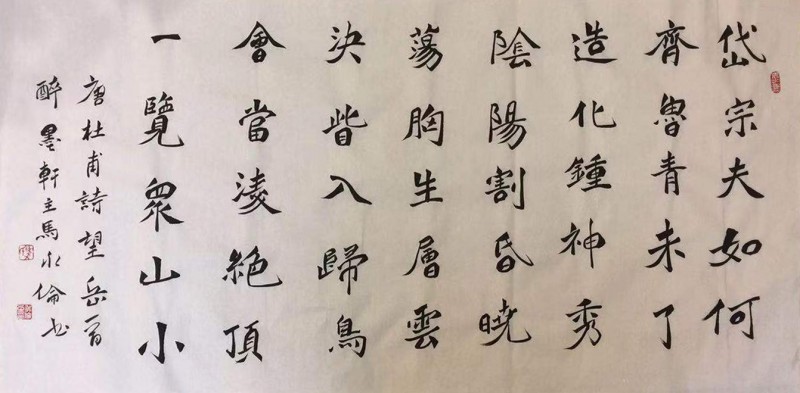 岱宗夫如何
齊魯青未了
造化鍾神秀
陰陽割昏曉
蕩胸生層雲
決眥入歸鳥
會當淩絕頂
一覽眾山小
唐杜甫詩望岳
醉墨軒主馬 倫书